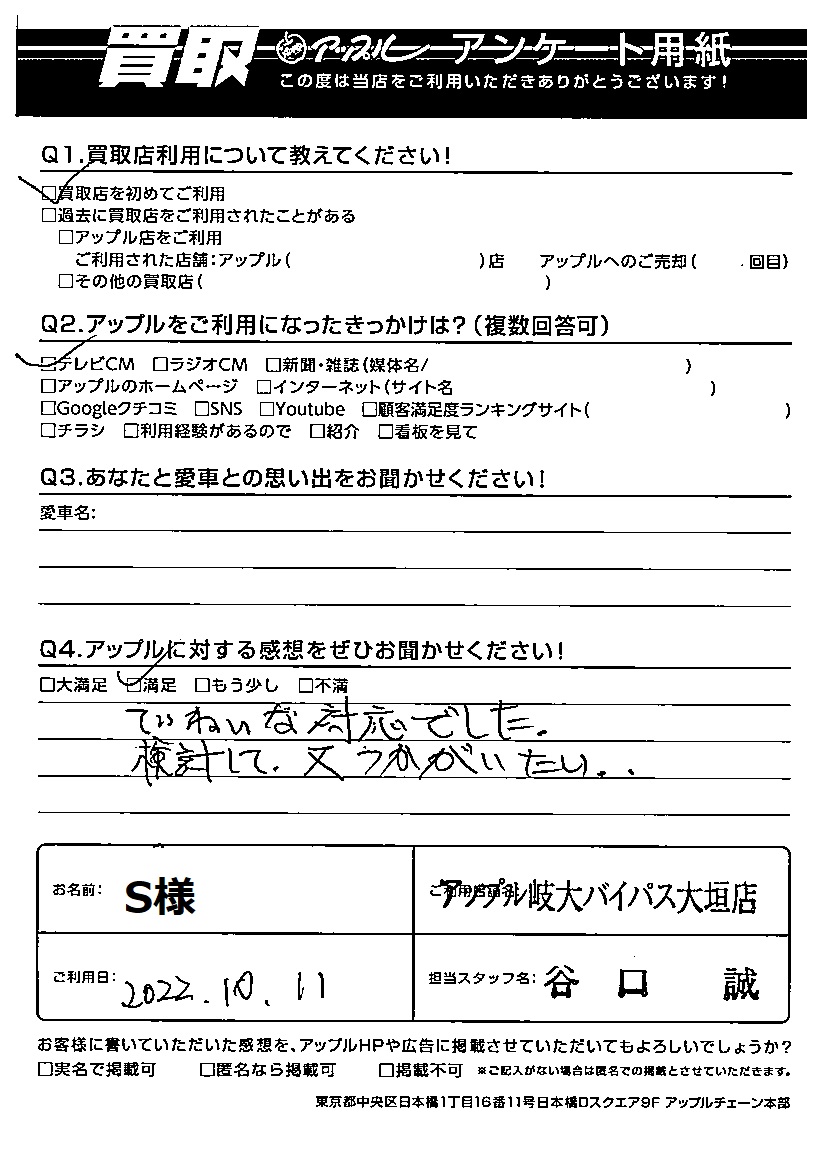 買取 アップル アンケート用紙
この度は当店をご利用いただきありがとうございます!
Q1.買取店利用について教えてください!
☑買取店を初めてご利用
□過去に買取店をご利用されたことがある
□アップル店をご利用
ご利用された店舗:アップル( )店 アップルへのご売却( 回目)
□その他の買取店( )
Q2.アップルをご利用になったきっかけは?(複数回答可)
☑テレビCM □ラジオCM □新聞・雑誌(媒体名/ )
□アップルのホームページ □インターネット(サイト名 )
□Googleクチコミ □SNS □Youtube □顧客満足度ランキングサイト( )
□チラシ □利用経験があるので □紹介 □看板を見て
Q3.あなたと愛車との思い出をお聞かせください!
愛車名:
Q4.アップルに対する感想をぜひお聞かせください!
□大満足 ☑満足 □もう少し □不満
ていねいな対応でした.
検討して.又うかがいたい..
お名前: S様 ご利用店舗名: アップル岐大バイパス大垣店
ご利用日: 2022.10.11 担当スタッフ名: 谷 口 誠
お客様に書いていただいた感想を、アップルHPや広告に掲載させていただいてもよろしいでしょうか?
□実名で掲載可 □匿名なら掲載可 □掲載不可 ※ご記入がない場合は匿名での掲載とさせていただきます。
東京都中央区日本橋1丁目16番11号日本橋Dスクエア9F アップルチェーン本部